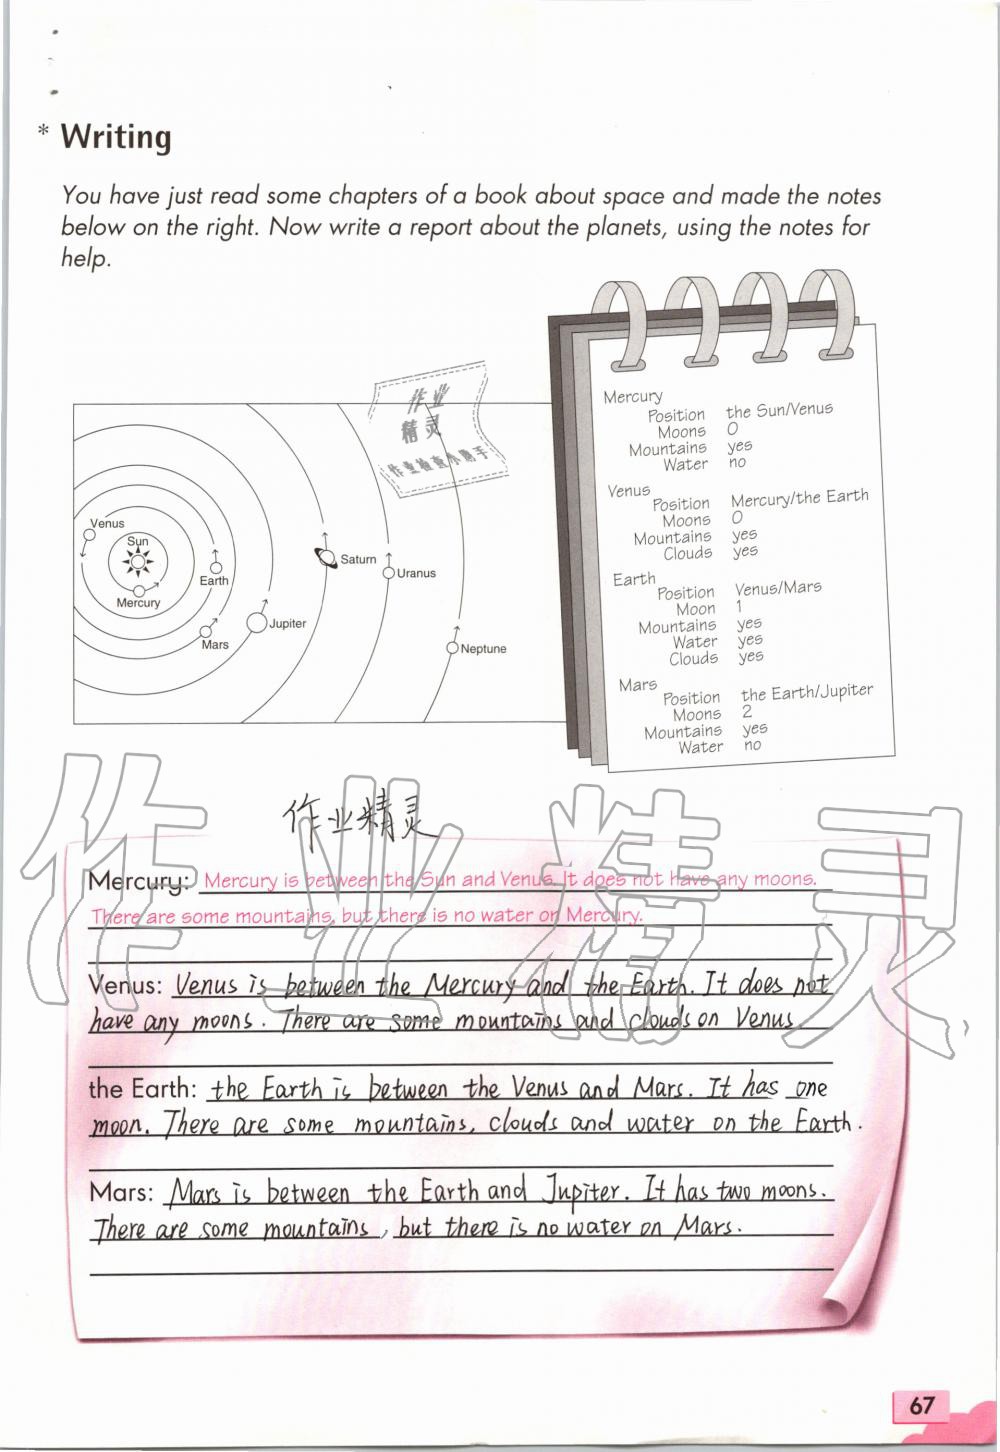 * Writing
You have just read some chapters of a book about space and made the notes
below on the right. Now write a report about the planets, using the notes for
help.
作业
精灵
作业检查小助手
Mercury
Position the Sun/Venus
Moons 0
Mountains yes
Water no
Venus
Position Mercury/the Earth
Moons 0
Mountains yes
Clouds yes
Earth
Position Venus/Mars
Moon 1
Mountains yes
Water yes
Clouds yes
Mars
Position the Earth/Jupiter
Moons 2
Mountains yes
Water no
Venus
Sun
Mercury
Earth
Mars
Jupiter
Saturn
Uranus
Neptune
作业精灵
作业精灵
Mercury: Mercury is between the Sun and Venus. It does not have any moons.
There are some mountains, but there is no water on Mercury.
Venus: Venus is between the Mercury and the Earth. It does not
have any moons. There are some mountains and clouds on Venus
the Earth: the Earth is between the Venus and Mars. It has one
moon. There are some mountains, clouds and water on the Earth.
Mars: Mars is between the Earth and Jupiter. It has two moons.
There are some mountains, but there is no water on Mars.
67